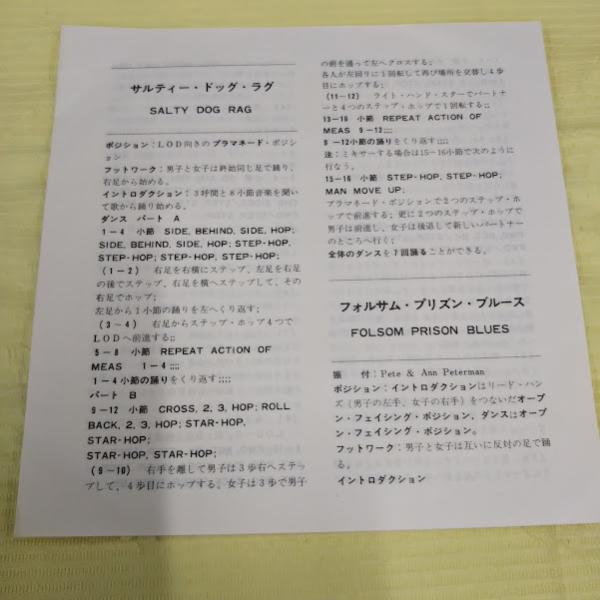 サルティー・ドッグ・ラグ
SALTY DOG RAG
ポジション:LOD向きのプラマネード・ポジシ
ョン
フットワーク:男子と女子は終始同じ足で踊り、
右足から始める。
イントロダクション:3呼間と8小節音楽を聞い
て歌から踊り始める。
ダンス パート A
1-4 小節 SIDE, BEHIND, SIDE, HOP;
SIDE, BEHIND, SIDE, HOP; STEP-HOP,
STEP-HOP; STEP-HOP, STEP-HOP;
(1-2) 右足を右横にステップ、左足を右足
の後でステップ、右足を横へステップして、その
右足でホップ;
左足から1小節の踊りを左へくり返す;
(3~4) 右足からステップ・ホップ4つで
LODへ前進する;;
5-8 小節 REPEAT ACTION OF
MEAS 1-4;;;;
1-4小節の踊りをくり返す;;;;
パート B
9-12 小節 CROSS, 2, 3, HOP; ROLL
BACK, 2, 3, HOP; STAR-HOP,
STAR-HOP;
STAR-HOP, STAR-HOP;
(9-10) 右手を離して男子は3歩右へステッ
プして、4歩目にホップする。女子は3歩で男子
の前を通って左へクロスする;
各人が左回りに1回転して再び場所を交替し4歩
目にホップする;
(11-12) ライト・ハンド・スターでパートナ
ーと4つのステップ・ホップで1回転する;;
13-16 小節 REPEAT ACTION OF
MEAS 9-12;;;;
9-12小節の踊りをくり返す;;;;
注:ミキサーする場合は15-16小節で次のように
行なう。
15-16 小節 STEP-HOP, STEP-HOP;
MAN MOVE UP;
プラマネード・ポジションで2つのステップ・ホ
ップで前進する;更に2つのステップ・ホップで
男子は前進し、女子は後退して新しいパートナー
のところへ行く;
全体のダンスを7回踊ることができる。
フォルサム・プリズン・ブルース
FOLSOM PRISON BLUES
振 付:Pete & Ann Peterman
ポジション:イントロダクションはリード・ハン
ズ(男子の左手、女子の右手)をつないだオープ
ン・フェイシング・ポジション、ダンスはオープ
ン・フェイシング・ポジション。
フットワーク:男子と女子は互いに反対の足で踊
る。
イントロダクション